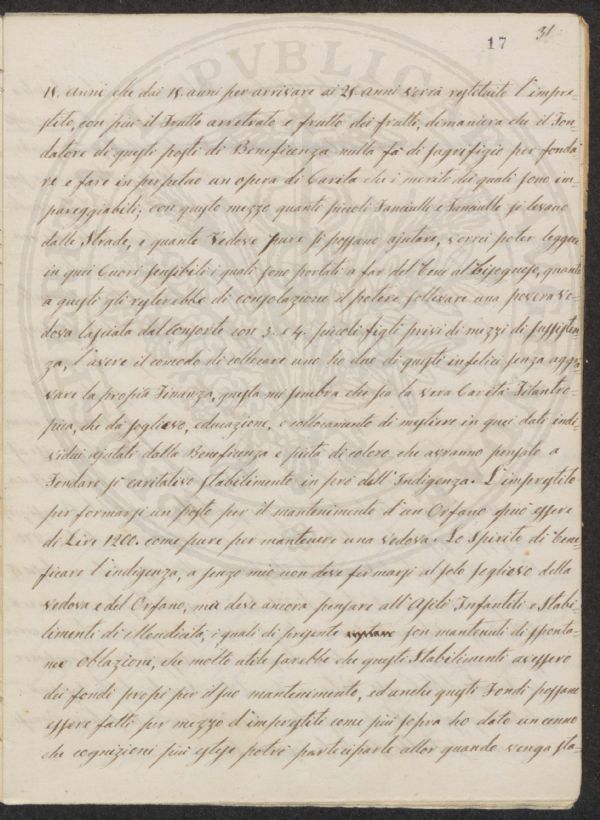 17 31
18. anni che dai 18. anni per arrivare ai 28 anni verrà restituito l'impre-
stito, con più il Frutto arretrato e frutto dei frutti, dimaniera che il Fon-
datore di questi posti di Beneficenza nulla fà di sagrifizio per fonda-
re e fare in perpetuo un opera di Carità che i meriti dei quali sono im-
pareggiabili; con questo mezzo quanti piccoli Fanciulli e Fanciulle si levano
dalle Strade, e quante Vedove pure si possano ajutare, vorrei poter leggere
in quei Cuori sensibili i quali sono portati a far del bene al Bisognoso, quanto
a questi gli resterebbe di consolazione il potere sollevare una povera ve-
dova lasciata dal Consorte con 3. e 4. piccoli figli privi di mezzi di sussisten-
za, l'avere il comodo di collocare uno ho due di questi infelici senza aggra-
vare la propria Finanza, questa mi sembra che sia la vera Carità Filantro-
pica, che dà soglievo, educazione, e collocamento di mestiere in quei dati indi-
vidui ajutati dalla Beneficenza e pietà di coloro che avranno pensato a
Fondare sì caritativo stabilimento in prò dell'Indigenza. L'imprestito
per formarsi un posto per il mantenimento d'un Orfano può essere
di Lire 1200. come pure per mantenere una vedova. Lo Spirito di bene-
ficare l'indigenza, a senzo mio non deve fermarsi al solo soglievo della
vedova e del Orfano, ma deve ancora pensare all'Asili Infantili e Stabi-
limenti di Mendicità, i quali di presente son mantenuti di sponta-
nee Oblazioni, che molto utile sarebbe che questi Stabilimenti avessero
dei fondi propri per il suo mantenimento, ed anche questi Fondi possano
essere fatti per mezzo d'imprestiti come più sopra ho dato un cenno
che cognizioni più estese potrò participarle allor quando venga sta-